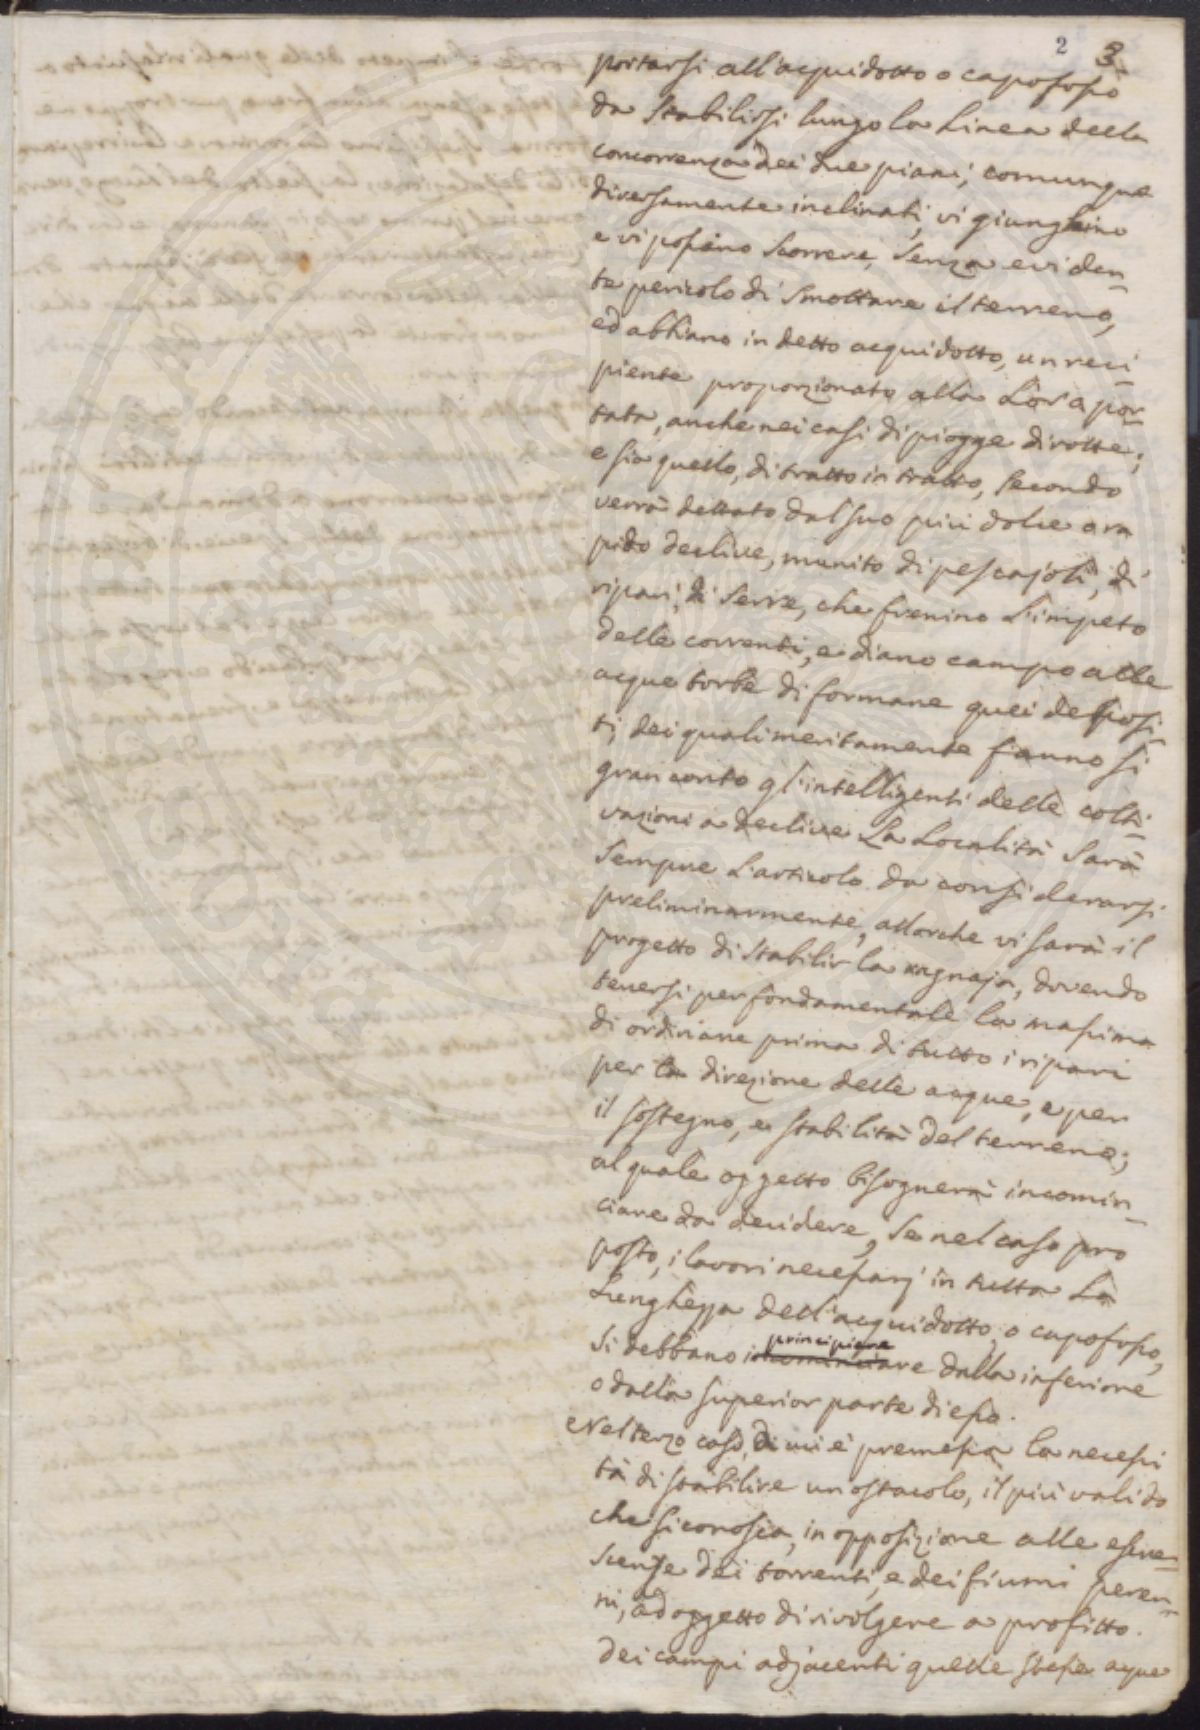 2 3
portarsi all'acquidotto o capofosso
da stabilirsi lungo la linea della
concorrenza dei due piani; comunque
diversamente inclinati, vi giunghino
e vi possino scorrere, senza eviden-
te pericolo di smottare il terreno,
ed abbiano in detto acquidotto, un reci-
piente proporzionato alla lor a por-
tata, anche nei casi di piogge dirotte;
e sia quello, di tratto in tratto, secondo
verrà dettato dal suo più dolce o ra
pido declive, munito di pescajoli, di
ripari, di serre, che frenino l'impeto
delle correnti, e diano campo alle
acque torbe di formare quei deposi-
ti, dei quali meritamente fanno sì
gran conto gl'intelligenti delle colti-
vazioni a declive. La località sarà
sempre l'articolo da considerarsi
preliminarmente, allorche vi sarà il
progetto di stabilir la ragnaja, dovendo
tenersi per fondamentale la massima
di ordinare prima di tutto i ripari
per la direzione delle acque, e per
il sostegno, e stabilità del terreno;
al quale oggetto bisognerà incomin-
ciare da decidere, se nel caso pro
posto, i lavori necessarj in tutta la
lunghezza dell'acquidotto, o capofosso,
principiare
si debbano incominciare dalla inferiore
o dalla superior parte di esso.
Nel terzo caso, di cui è premessa la necessi
tà di stabilire un ostacolo, il più valido
che si conosca, in opposizione alle escre-
scenze dei torrenti, e dei fiumi peren-
ni, ad oggetto di rivolgere a profitto
dei campi adjacenti quelle stesse acque